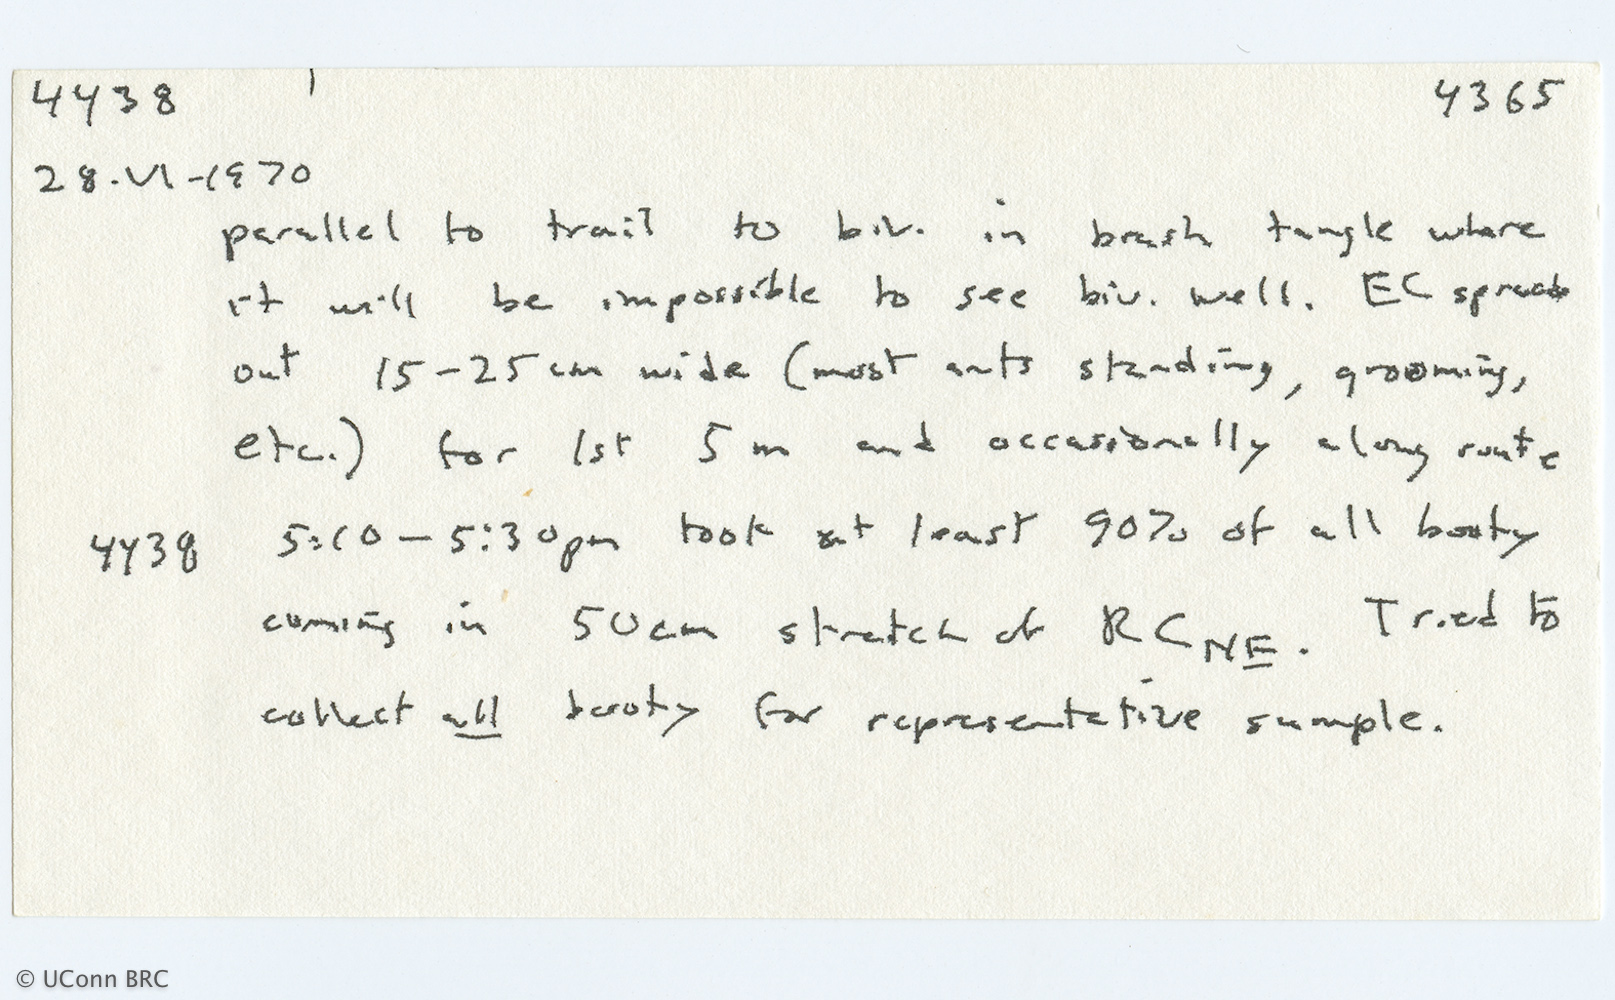 4438 4365
28-VI-1970
parallel to trail to biv. in brush tangle where
it will be impossible to see biv. well. EC spreads
out 15-25 cm wide (most ants standing, grooming,
etc.) for 1st 5 m and occassionally along route
4438 5:10-5:30pm took at least 90% of all booty
coming in 50cm stretch of RC NE. Tried to
collect all booty for representative sample.
© UConn BRC